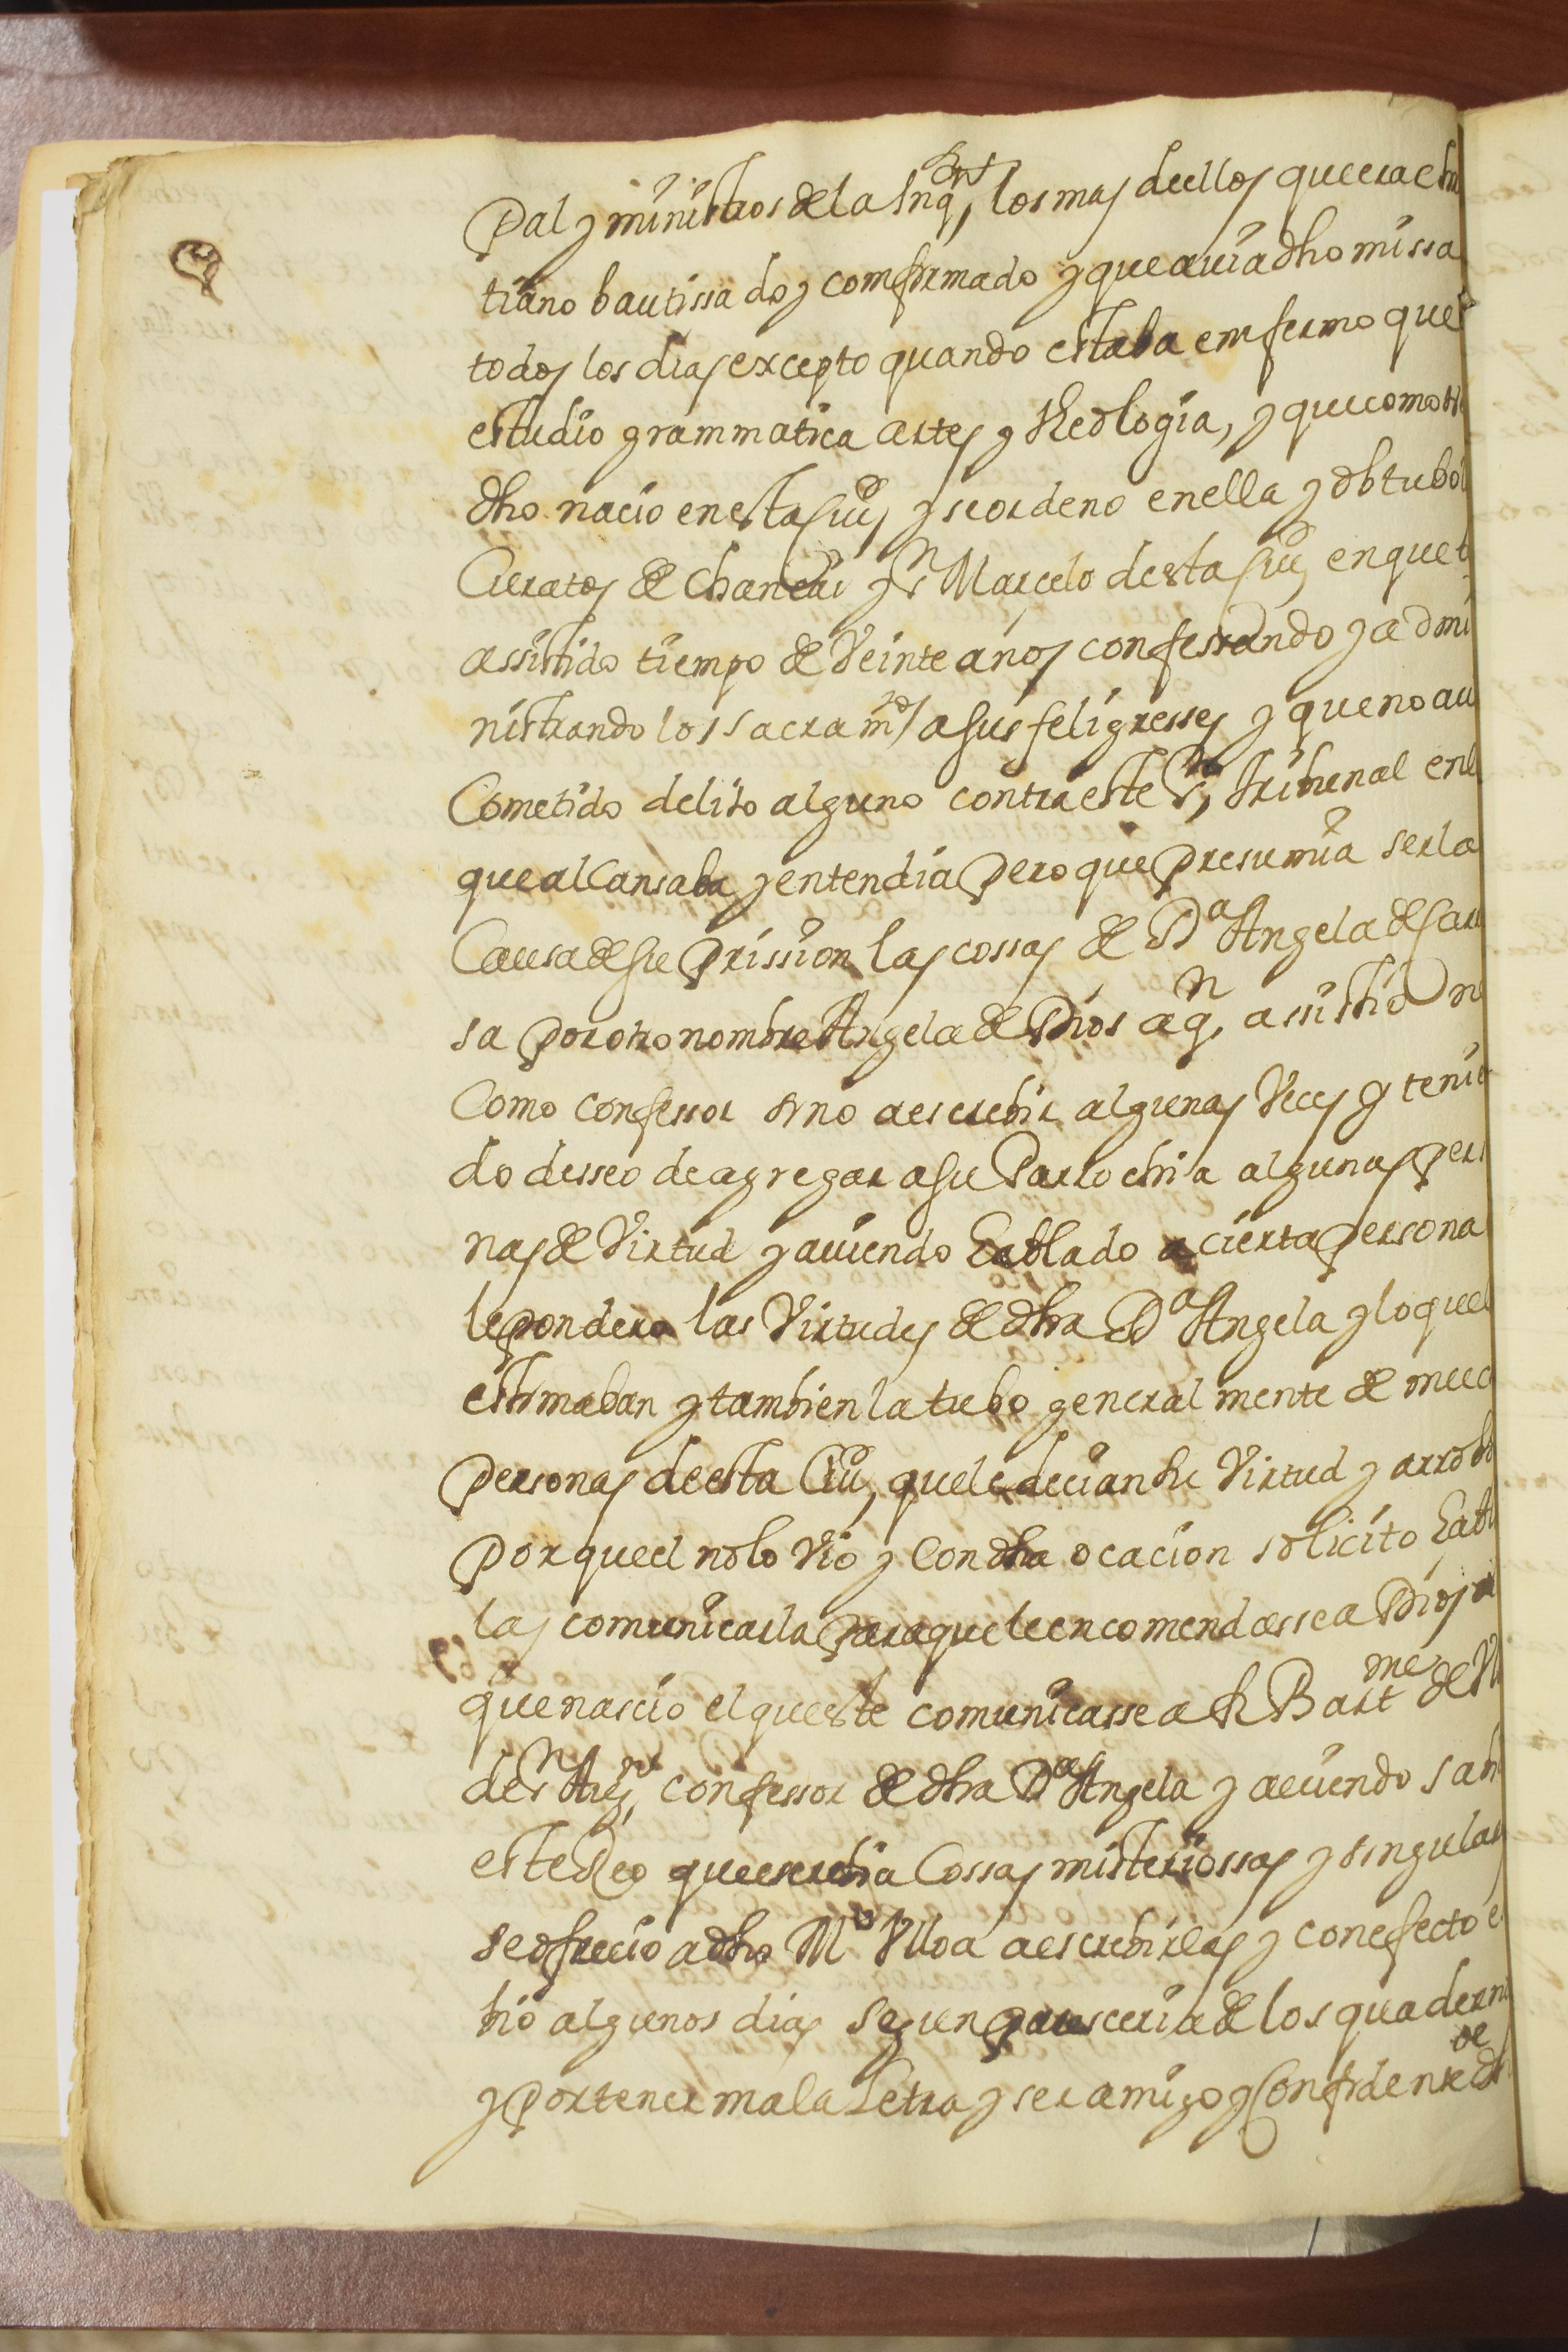 pal y ministros de la Inqon, los mas deellos que era chri
tiano bautissado y comfirmado y que auia dho missa
todos los dias excepto quando estaba emfermo que
estudio grammatica artes y theologia, y que como
dho nacio en esta Ciud y se ordeno en ella y obtubo
Curatos de Chancai y Sn Marcelo desta Ciud, en que
assistido tiempo de Veinte años confessando y admi
nistrando los sacramtos a sus feligresses y que no aui
Cometido delito alguno contra este Sto, tribunal en l
que alcansaba y entendia pero que presumia ser la
Causa de su prission las cossas de Da Angela de Car
sa por otro nombre Angela de Dios a qn, assistio n
Como confessor sino a escrebir algunas Veces y teni
do desseo de agregar a su Parrochia algunas pers
nas de Virtud y auiendo hablado a cierta persona
le pondero las Virtudes de dha Da Angela y lo que
estimaban y tambien la tubo generalmente de muc
personas de esta Ciud, que le decian su Virtud y arrobo
porque el no lo Vio y Con dha ocacion solicito habl
la y comunicarla para que le encomendasse a Dios
que nascio el que este comunicasse a fr Bartme de Vl
de Sn Augn, confessor de dha Da Angela y auiendo sab
este Reo que escrebia Cossas misteriossas y singular
se ofrecio a dho Mo Vlloa a escrebirlas y con efecto e
bio algunos dias segun paresceria de los quadern
y por tener mala Letra y ser amigo y Confidente de